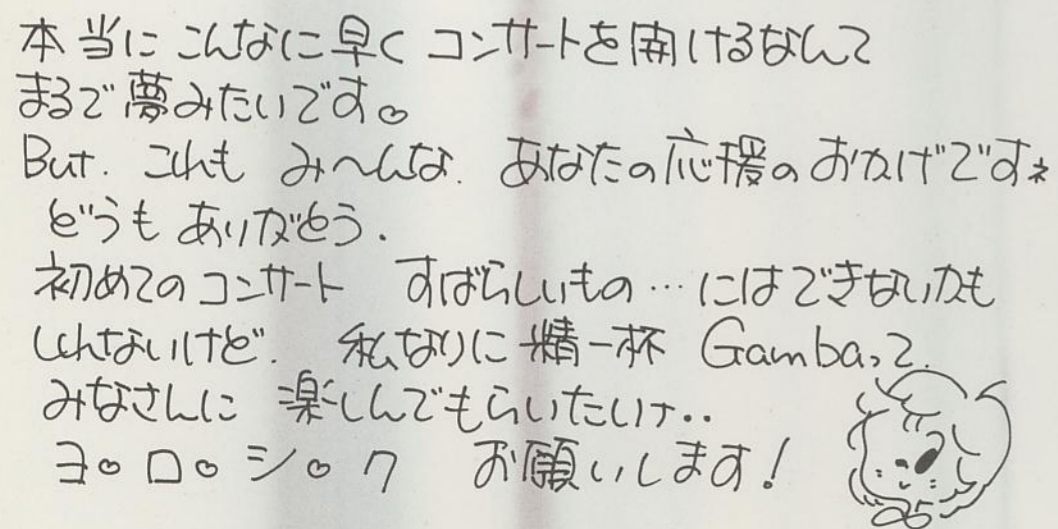 本当に こんなに早く コンサートを開けるなんて
まるで夢みたいです。
But. これも みーんな. あなたの応援のおかげです*
どうも ありがとう.
初めてのコンサート すばらしいもの…にはできないかも
しれないけど. 私なりに 精一杯 Gambaって.
みなさんに 楽しんでもらいたいナ..
ヨ。ロ。シ。ク お願いします!